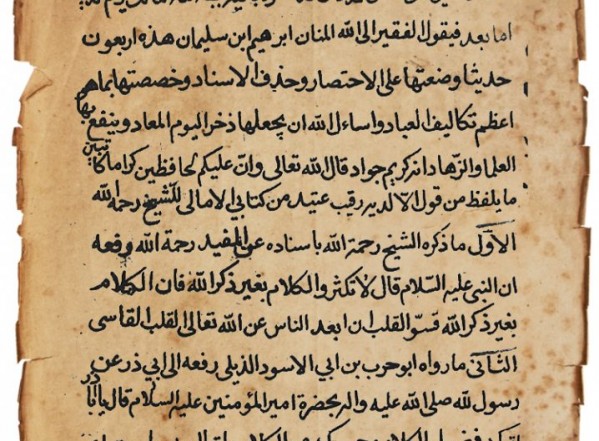 اما بعد فيقول الفقير الى الله المنان ابرهيم ابن سليمان هذه اربعون
حديثا وضعتها على الاختصار وحذف الاسناد وخصصتها بما هو
اعظم تكاليف العباد واساءل الله ان يجعلها ذخرا ليوم المعاد وينفع بها
العلما والزهاد انه كريم جواد قال الله تعالى وان عليكم لحافظين كراما كاتبين
ما يلفظ من قول الا لديه رقيب عتيد من كتابي الامالى للشيخ رحمه الله
الاول ما ذكره الشيخ رحمة الله باسناده عن المفيد رحمة الله رفعه
ان النبي عليه السلام قال لا تكثروا الكلام بغير ذكر الله فان الكلام
بغير ذكر الله قسو القلب ان ابعد الناس عن الله تعالى القلب القاسى
الثانى ما رواه ابو حرب بن ابي الاسود الديلى رفعه الى ابي ذر عن
رسول الله صلى الله عليه واله بحضرة امير المؤمنين عليه السلام قال يا ابا ذر